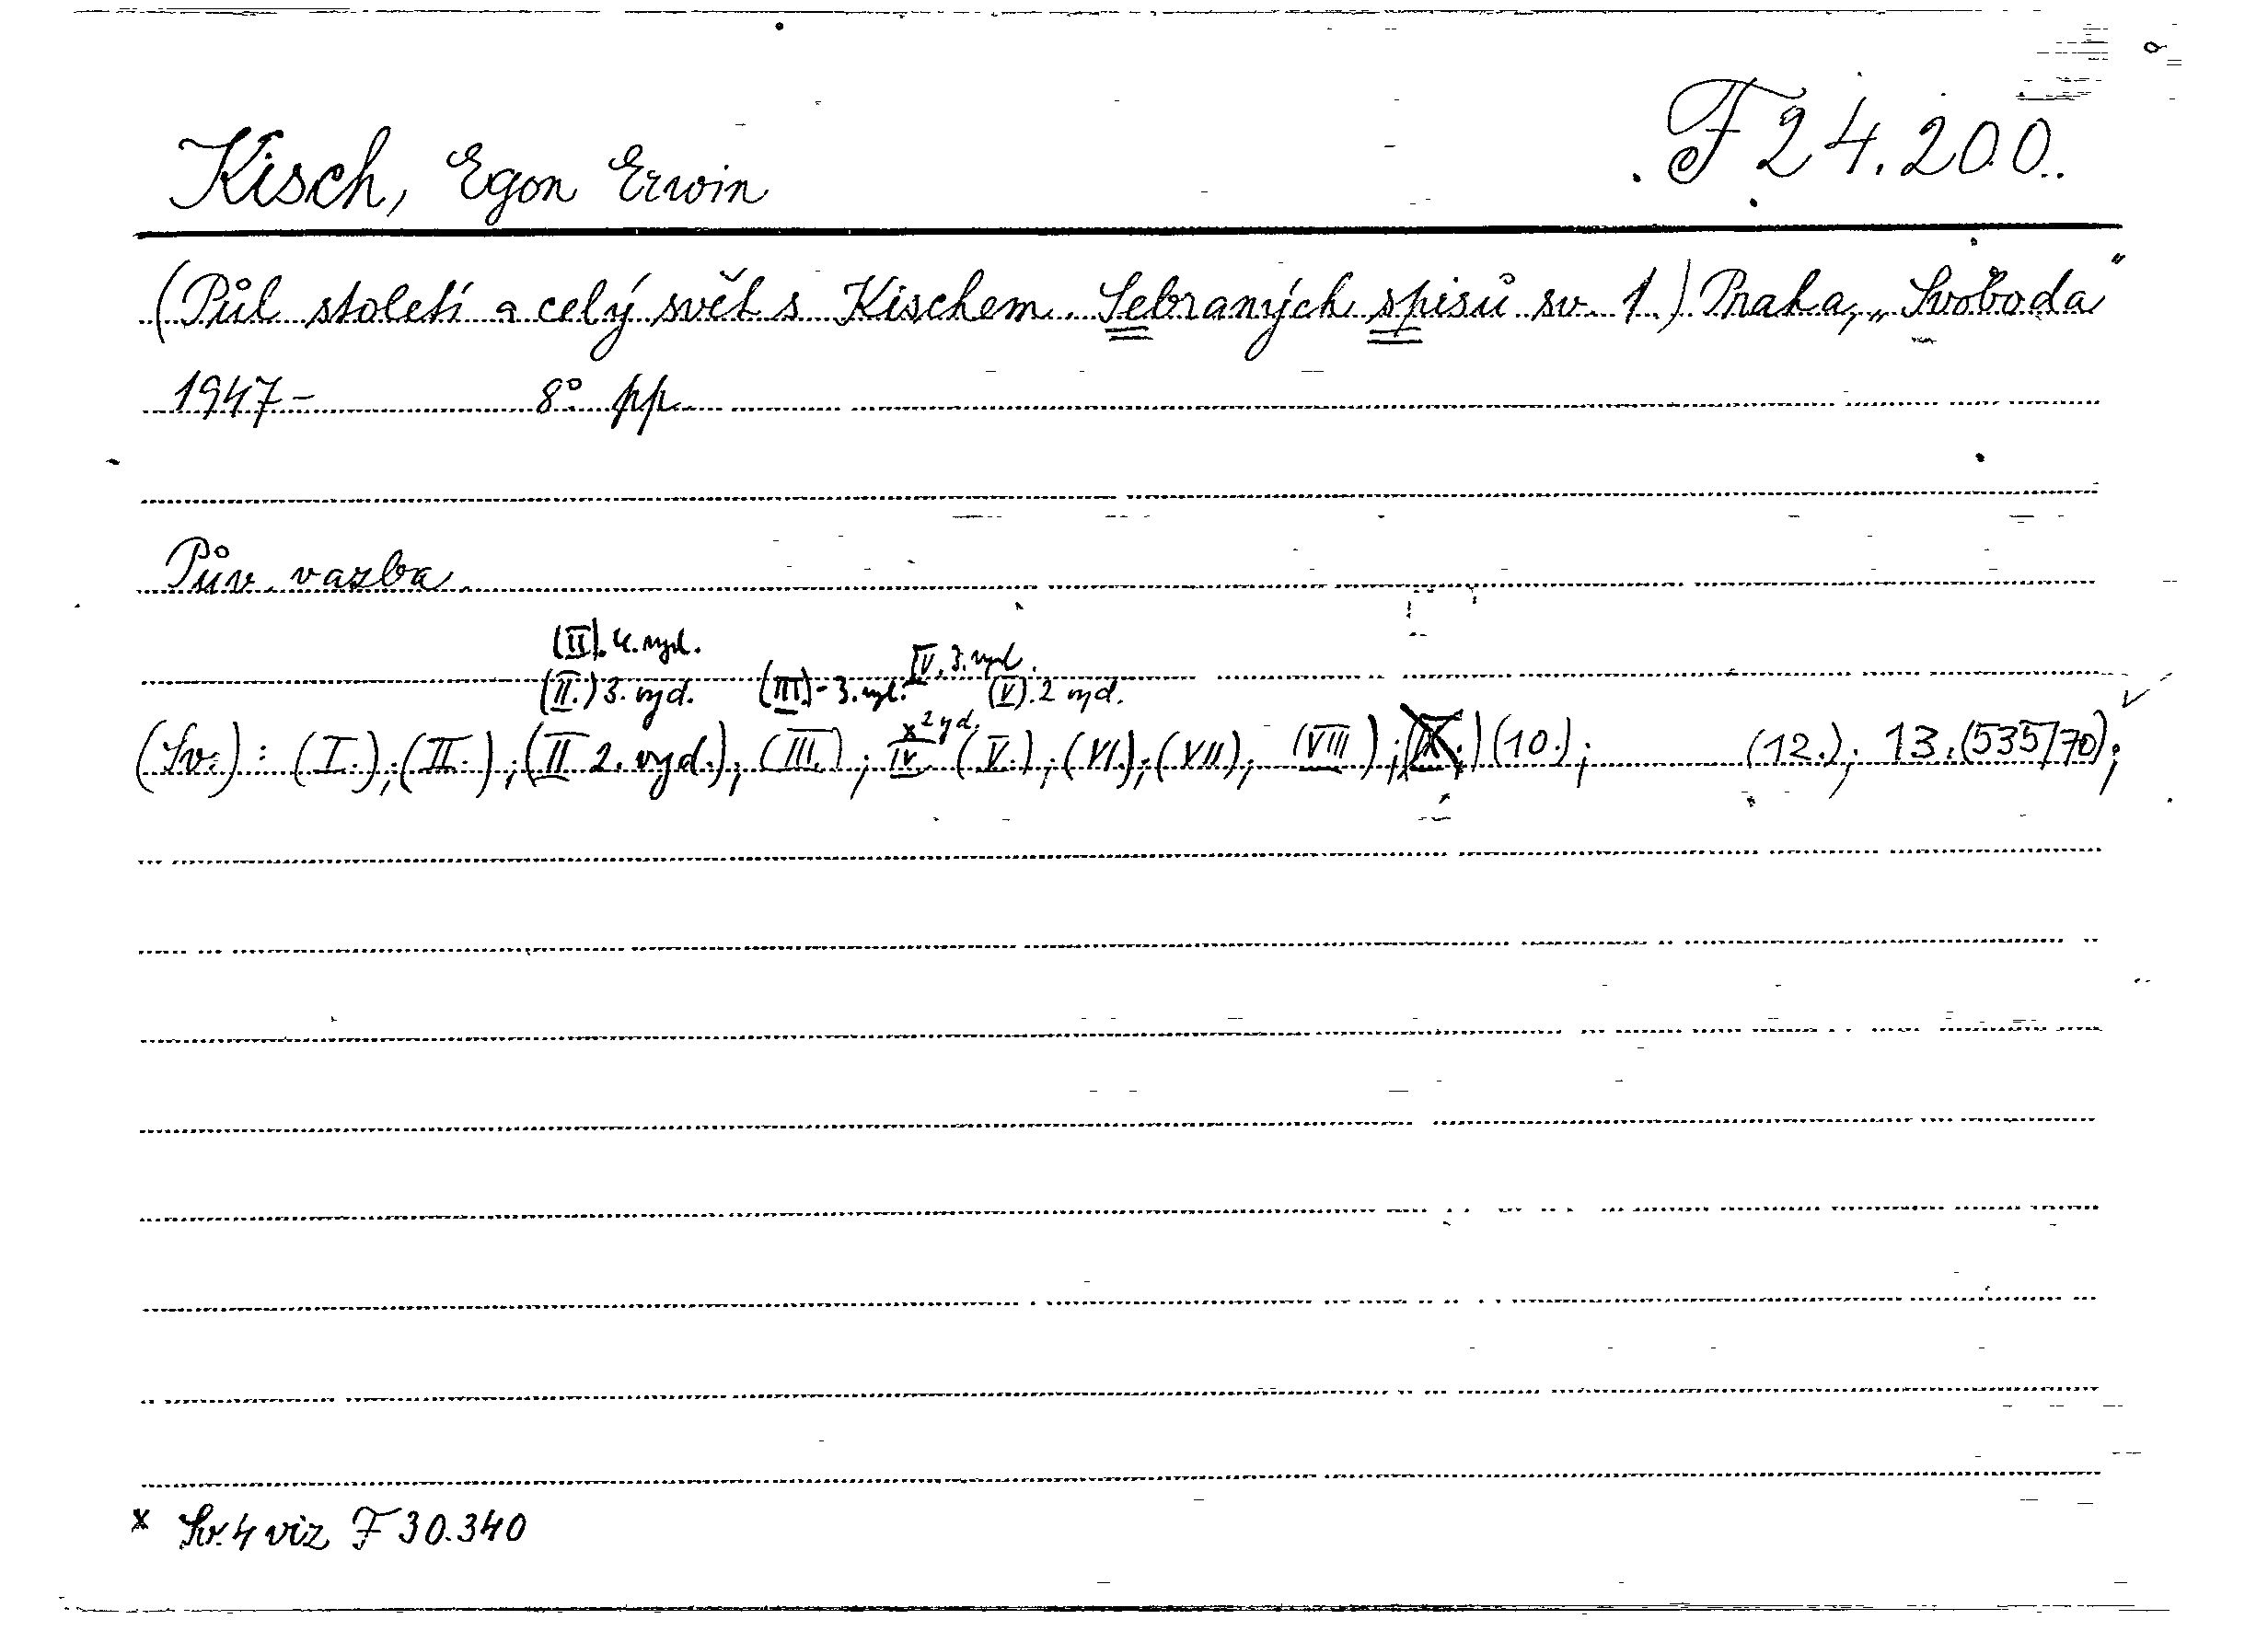 Kisch, Egon Erwin
F 24.200.
(Půl století a celý svět s Kischem. Sebraných spisů sv. 1.) Praha, „Svoboda"
1947- 8° pp
Pův. vazba.
(II). 4. vyd.
IV. 3. vyd.
(II.) 3. vyd. (III.) - 3. vyd. (V). 2 vyd.
x 2 yd.
(Sv.): (I.); (II.); (II 2. vyd.); (III.); IV. (V.); (VI); (VII); (VIII); (10.); (12.); 13. (535/70);
x Sv. 4 viz F 30.340